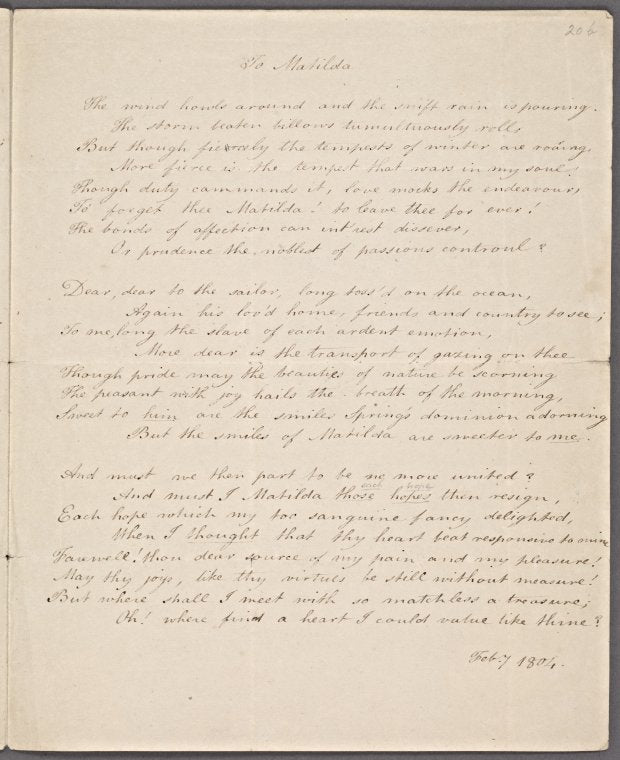 206
To Matilda
The wind howls around and the swift rain is pouring.
The storm beaten billows tumultuously roll,
But though fiercely the tempests of winter are roaring,
More fierce is the tempest that wars in my soul!
Though duty commands it, love mocks the endeavour,
To forget thee Matilda! to leave thee for ever!
The bonds of affection can int'rest dissever,
Or prudence the noblest of passions controul?
Dear, dear to the sailor, long toss'd on the ocean,
Again his lov'd home, friends and country to see;
To me, long the slave of each ardent emotion,
More dear is the transport of gazing on thee
Though pride may the beauties of nature be scorning
The peasant with joy hails the breath of the morning,
Sweet to him are the smiles Spring's dominion adorning
But the smiles of Matilda are sweeter to me.
And must we then part to be no more united?
each hope
And must I Matilda those hopes then resign,
Each hope which my too sanguine fancy delighted,
When I thought that thy heart beat responsive to mine
Farewell! thou dear source of my pain and my pleasure!
May thy joys, like thy virtues be still without measure!
But where shall I meet with so matchless a treasure;
Oh! where find a heart I could value like thine?
Feb. 7 1804.